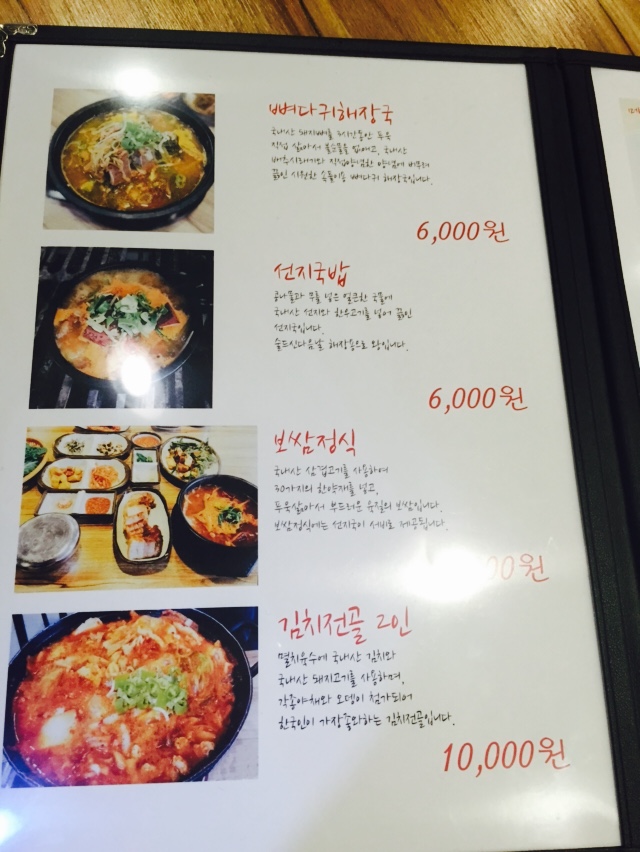 뼈다귀해장국
국내산 돼지뼈를 3시간동안 푸욱
직접 삶아서 불순물을 없애고, 국내산
배추시래기와 직접양념한 양념에 버무려
끓인 시원한 속풀이용 뼈다귀 해장국입니다.
6,000원
선지국밥
콩나물과 무를 넣은 얼큰한 국물에
국내산 선지와 한우고기를 넣어 끓인
선지국입니다.
술드신다음날 해장용으로 왕입니다.
6,000원
보쌈정식
국내산 삼겹고기를 사용하여
40가지의 한약재를 넣고,
푸욱삶아서 부드러운 육질의 보쌈입니다.
보쌈정식에는 선지국이 서비로 제공됩니다.
00원
김치전골 2인
멸치육수에 국내산 김치와
국내산 돼지고기를 사용하며,
각종야채와 오뎅이 첨가되어
한국인이 가장좋와하는 김치전골입니다.
10,000원